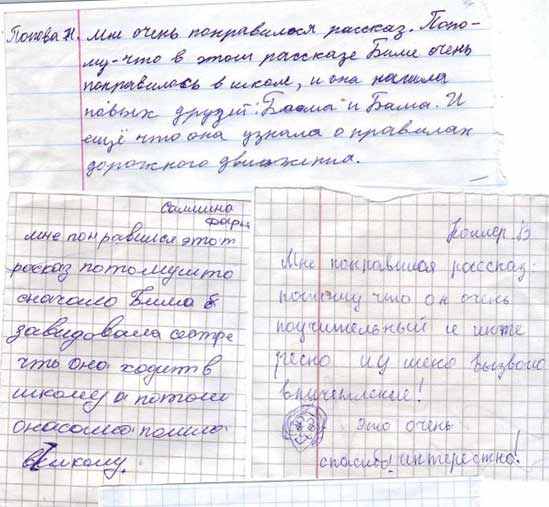 Попова Н. Мне очень понравилося рассказ. Пото-
му-что в этом рассказе Биме очень
понравилось в школе, и она нашла
новых друзей: Баома и Бама. И
ещё что она узнала о правилах
дорожного движения.
Саммина
Фари
мне понравился этот
росказ потомушто
сначало Бима
завидовала сестре
что она ходит в
школу а потом
онасама пошла
вшколу.
Коплер В
Мне понравился рассказ
потому что он очень
поучительный и инте
ресно и у меня вызвало
впичетление!
это очень
спасиба! интерестно!